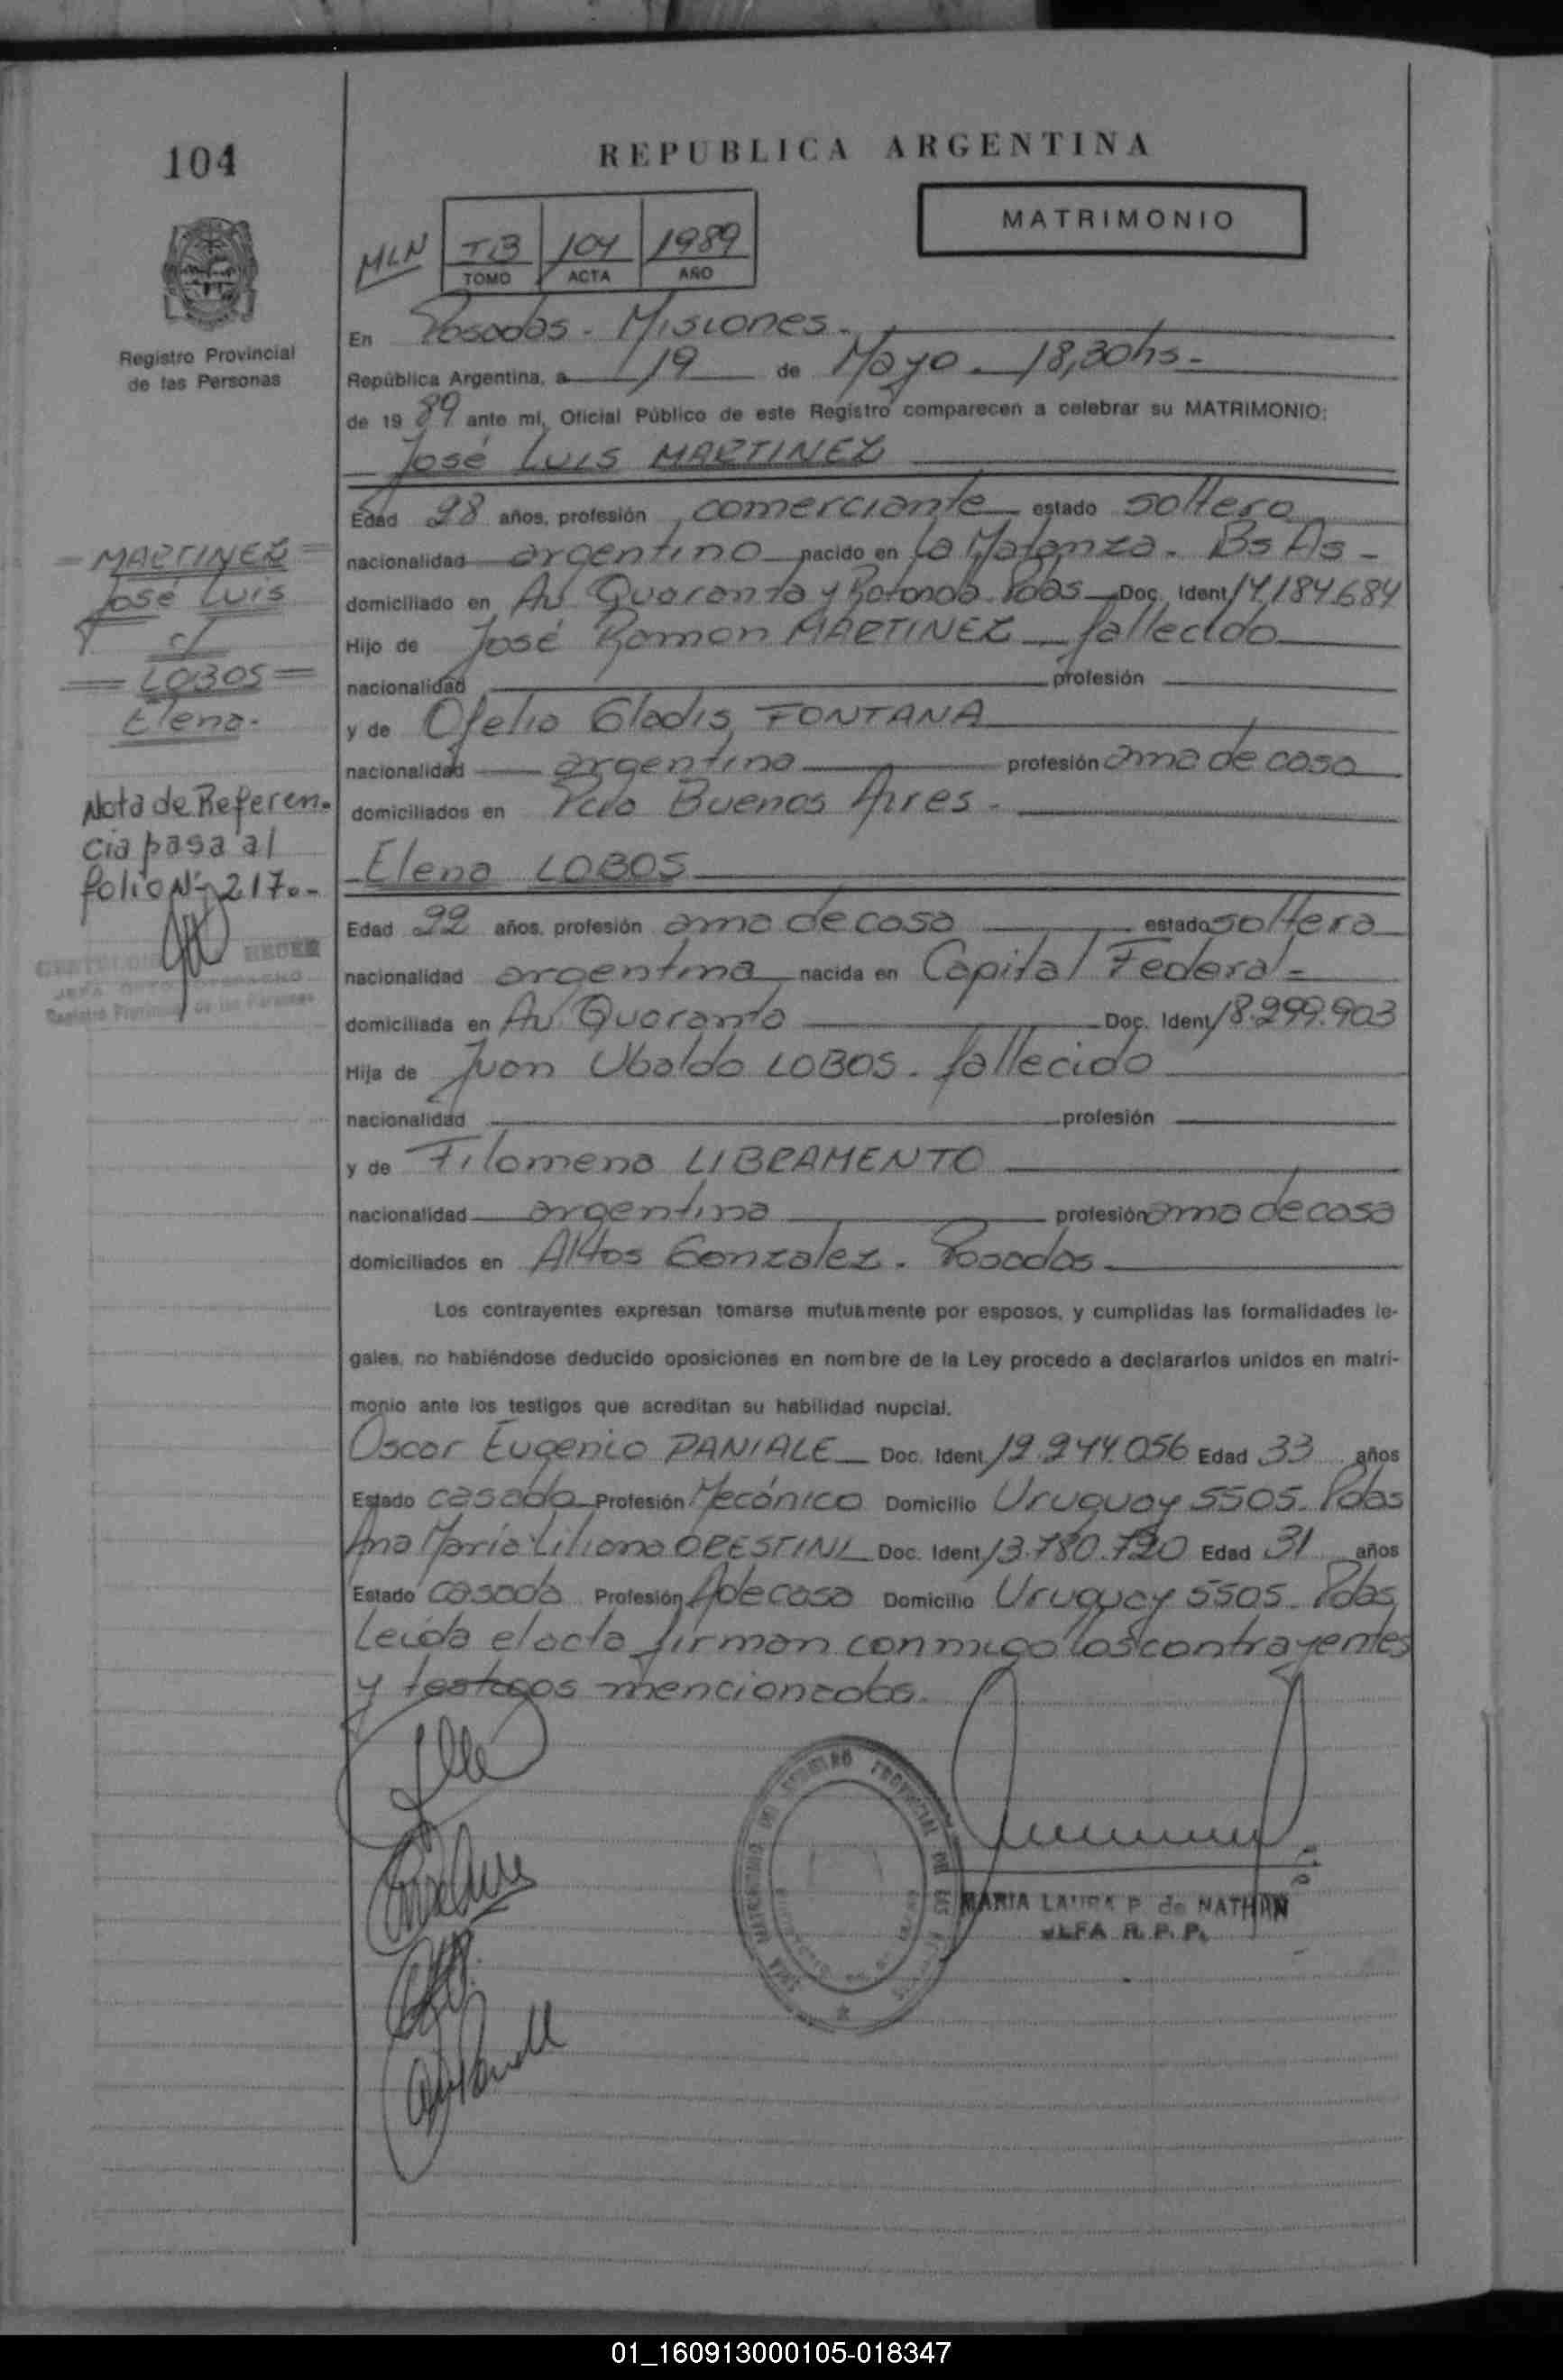 104
REPUBLICA ARGENTINA
MATRIMONIO
MLN
T.B 104 1989
TOMO ACTA AÑO
Registro Provincial
de las Personas
En Posadas - Misiones -
República Argentina, a 19 de Mayo - 18,30hs -
de 19 89 ante mí, Oficial Público de este Registro comparecen a celebrar su MATRIMONIO:
José Luis MARTINEZ
Edad 28 años, profesión comerciante estado soltero
nacionalidad argentino nacido en La Matanza - Bs As -
domiciliado en Av Quaranta y Rotonda Pdas Doc. Ident. 14.184.684
Hijo de José Ramon MARTINEZ fallecido
nacionalidad profesión
y de Ofelia Gladis FONTANA
nacionalidad argentina profesión ama de casa
domiciliados en Pcia Buenos Aires -
= MARTINEZ =
José Luis
c/
= LOBOS =
Elena -
Nota de Referen-
cia pasa al
folio Nº 217.-
Registro Provincial de las Personas
Elena LOBOS
Edad 22 años, profesión ama de casa estado soltera
nacionalidad argentina nacida en Capital Federal -
domiciliada en Av. Quaranta Doc. Ident. 18.299.903
Hija de Juan Ubaldo LOBOS - fallecido
nacionalidad profesión
y de Filomena LIBRAMENTO
nacionalidad argentina profesión ama de casa
domiciliados en Aktos Gonzalez - Posadas
Los contrayentes expresan tomarse mutuamente por esposos, y cumplidas las formalidades le-
gales, no habiéndose deducido oposiciones en nombre de la Ley procedo a declararlos unidos en matri-
monio ante los testigos que acreditan su habilidad nupcial.
Oscar Eugenio PANIALE Doc. Ident. 12.244.056 Edad 33 años
Estado casado Profesión Mecánico Domicilio Uruguay 5505 - Pdas
Ana María Liliana ORESTINI Doc. Ident. 13.780.720 Edad 31 años
Estado casada Profesión A de casa Domicilio Uruguay 5505 - Pdas
Leida el acta firman conmigo los contrayentes
y testigos mencionados.
MARIA LAURA P. de NATHAN
JEFA R. P. P.
01_160913000105-018347